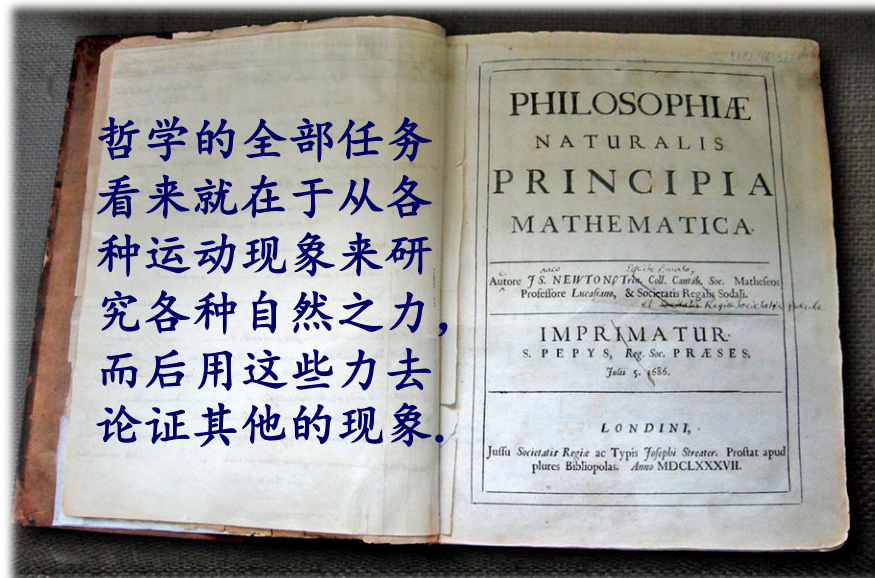 哲学的全部任务
看来就在于从各
种运动现象来研
究各种自然之力，
而后用这些力去
论证其他的现象.
PHILOSOPHIÆ
NATURALIS
PRINCIPIA
MATHEMATICA.
Autore JS. NEWTON, Trin. Coll. Cantab. Soc. Matheseos
Professore Lucasiano, & Societatis Regalis Sodali.
IMPRIMATUR.
S. PEPYS, Reg. Soc. PRÆSES.
Julii 5. 1686.
LONDINI,
Jussu Societatis Regiæ ac Typis Josephi Streater. Prostat apud
plures Bibliopolas. Anno MDCLXXXVII.